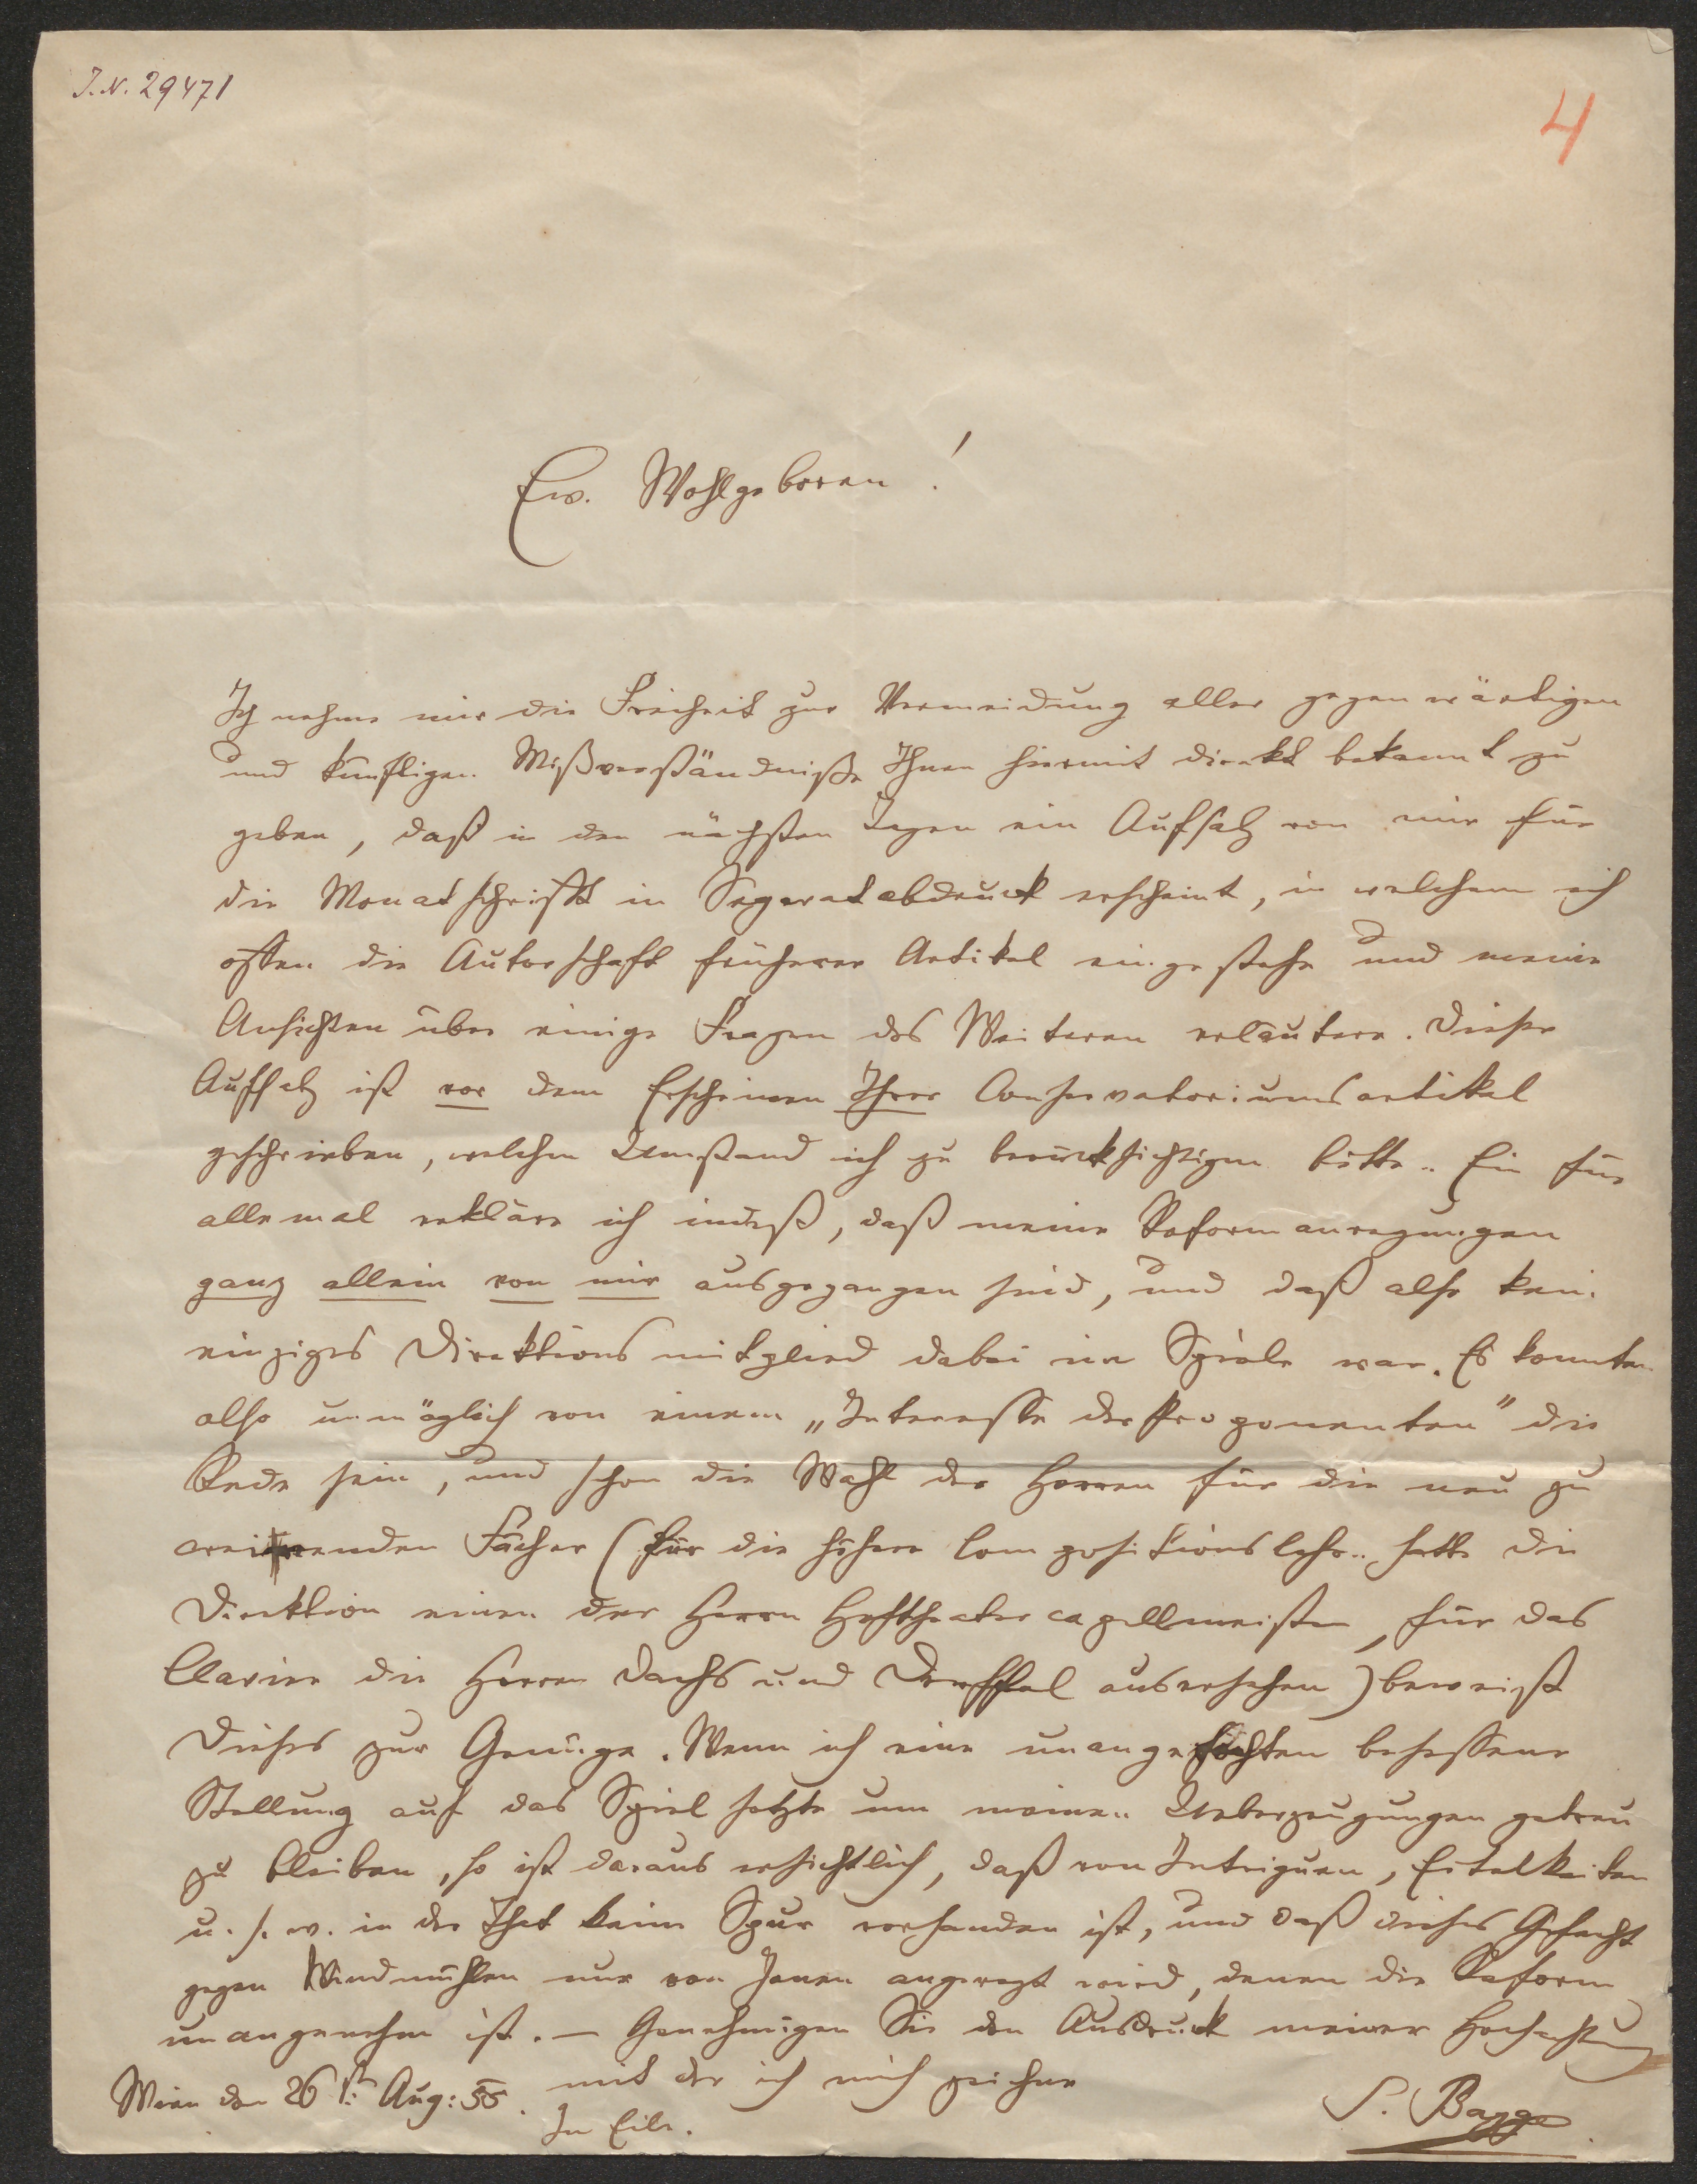 J.N. 29471
4
Ew. Wohlgeboren!
Ich nehme mir die Freiheit zur Vermeidung aller gegenwärtigen
und künftigen Mißverständniße Ihnen hiermit direkt bekannt zu
geben, daß in den nächsten Tagen ein Aufsatz von mir für
die Monatschrift in Separatabdruck erscheint, in welchem ich
offen die Autorschaft früherer Artikel eingestehe und meine
Ansichten über einige Fragen des Weiteren erläutere. Dieser
Aufsatz ist vor dem Erscheinen Ihrer Conservatoriumsartikel
geschrieben, welchen Umstand ich zu berücksichtigen bitte. Ein für
allemal erkläre ich indeß, daß meine Reformanregungen
ganz allein von mir ausgegangen sind, und daß also kein
einziges Direktionsmitglied dabei im Spiele war. Es konnte
also unmöglich von einem „Interesse der Proponenten" die
Rede sein, und schon die Wahl der Herren für die neu zu
creirenden Fächer (für die höhere Compositionslehre hatte die
Direktion einen der Herrn Hoftheatercapellmeister, für das
Clavier die Herren Dachs und Dreyschock ausersehen) beweißt
dieses zur Genüge. Wenn ich eine unangefochten besessene
Stellung auf das Spiel setzte um meinen Ueberzeugungen getreu
zu bleiben, so ist daraus ersichtlich, daß von Intriguen, Eitelkeiten
u. s. w. in der That keine Spur vorhanden ist, und daß dieses Gefecht
gegen Windmühlen nur von Jenen angeregt wird, denen die Reform
unangenehm ist. — Genehmigen Sie den Ausdruck meiner Hochachtung
mit der ich mich zeichne
Wien den 26t. Aug: 55.
In Eile.
S. Bagge